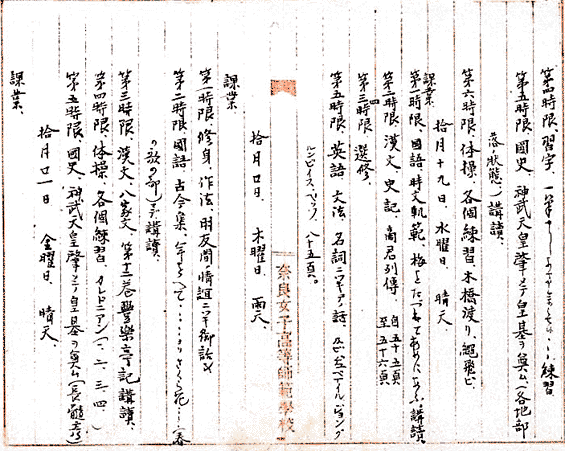 第四時限、習字、練習
第五時限、國史、神武天皇肇メテ皇基ヲ奠ム(各地部
落ノ狀態)講讀、
第六時限、体操、各個練習、木橋渡リ、繩飛ビ、
拾月十九日、水曜日、晴天、
課業、
第一時限、國語、時文軌範、梅をたづねてあめにあふ、講讀、
第二時限、漢文、史記、商君列傳 自五十五頁 至五十六頁
第三四時限、選修、
第五時限、英語、文法、名詞ニツキテノ話、
八十五頁。
奈良女子高等師範學校
拾月廿日、木曜日、雨天、
課業、
第一時限、修身、作法、朋友間ノ情誼ニツキ御話
第二時限、國語、古今集、さくら花(春
の歌の部)講讀、
第三時限、漢文、八家文、第十二卷豐樂亭記講讀、
第四時限、体操、各個練習、カレドニアン(一、二、三、四、)
第五時限、國史、神武天皇肇メテ皇基ヲ奠ム
拾月廿一日、金曜日、晴天、
課業、